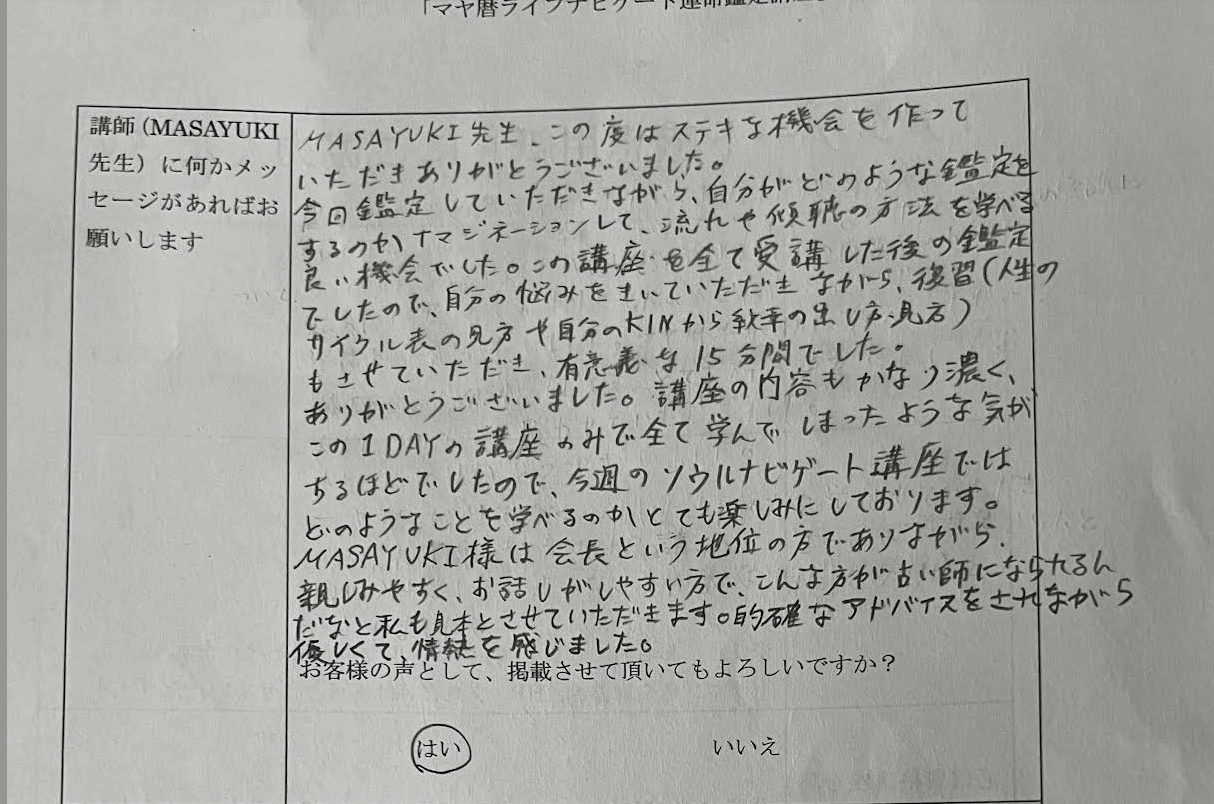 「マヤ暦ライフナビゲート運命鑑定講座」
講師（MASAYUKI
先生）に何かメッ
セージがあればお
願いします
MASAYUKI先生、この度はステキな機会を作って
いただきありがとうございました。
今回鑑定していただきながら、自分がどのような鑑定を
するのかイマジネーションして、流れや傾聴の方法を学べる
良い機会でした。この講座を全て受講した後の鑑定
でしたので、自分の悩みをきいていただきながら、復習(人生の
サイクル表の見方や自分のKINから の出し方・見方)
もさせていただき、有意義な15分間でした。
ありがとうございました。講座の内容もかなり濃く、
この1DAYの講座のみで全て学んでしまったような気が
するほどでしたので、今週のソウルナビゲート講座では
どのようなことを学べるのかとても楽しみにしております。
MASAYUKI様は会長という地位の方でありながら、
親しみやすく、お話しがしやすい方で、こんな方が占い師になられるん
だなと私も見本とさせていただきます。的確なアドバイスをされながら
優しくて、情熱を感じました。
お客様の声として、掲載させて頂いてもよろしいですか？
はい いいえ